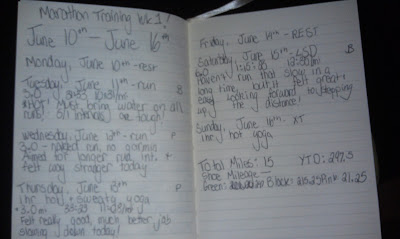 Marathon Training Wk 1!
June 10th - June 16th
Monday, June 10th - rest
Tuesday, June 11th - run B
3.0
*HOT! Must bring water on all
runs! are tough!
Wednesday, June 12th - run P
3.0 - naked run, no garmin
Aimed for longer run, int. +
felt way stronger today
Thursday, June 13th P
1 hr. hot + sweaty yoga
+3.0 mi 33:23
Felt really good, much better job
slowing down today!
Friday, June 14th - REST
Saturday, June 15th - LSD B
6.0 1:15:
Haven't run that slow in a
long time, but it felt great!
looking forward to stepping
up the distance!
Sunday, June 16th - XT
1 hr. hot yoga
Total Miles: 15 YTD: 297.3
Shoe Mileage
Green: Black: Pink 21.25